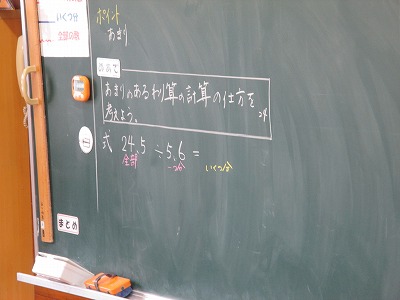 いくつ分
全部の数
ポイント
あまり
めあて
あまりのあるわり算の計算の仕方を
考えよう。
式 24.5 ÷ 5.6 =
全部 一つ分 いくつ分
まとめ